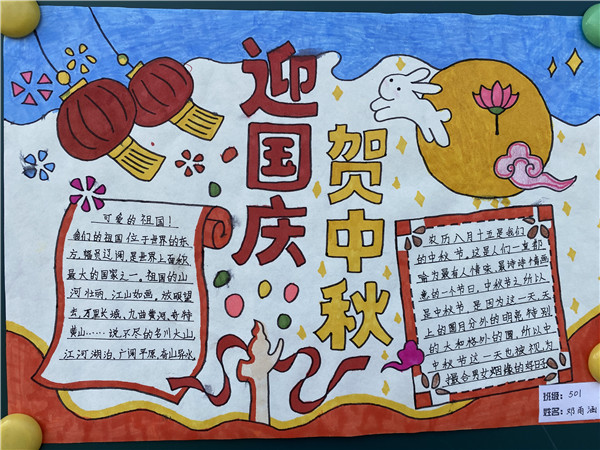 迎国庆
贺中秋
可爱的祖国!
我们的祖国位于世界的东
方,幅员辽阔,是世界上面积
最大的国家之一。祖国的山
河壮丽,江山如画,放眼望
去,万里长城,九曲黄河,奇特
黄山……说不尽的名川大山,
江河湖泊,广阔平原,奇山异水
农历八月十五是我们
的中秋节,这是人们一直都
喻为最有人情味、最诗诗情画
意的一个节日,中秋节之所以
是中秋节,是因为这一天,天
上的圆月分外的明亮,特别
的大和格外的圆,所以中
中秋节这一天也被视为
撮合男女姻缘的好日子
班级: 501
姓名: 邓雨涵